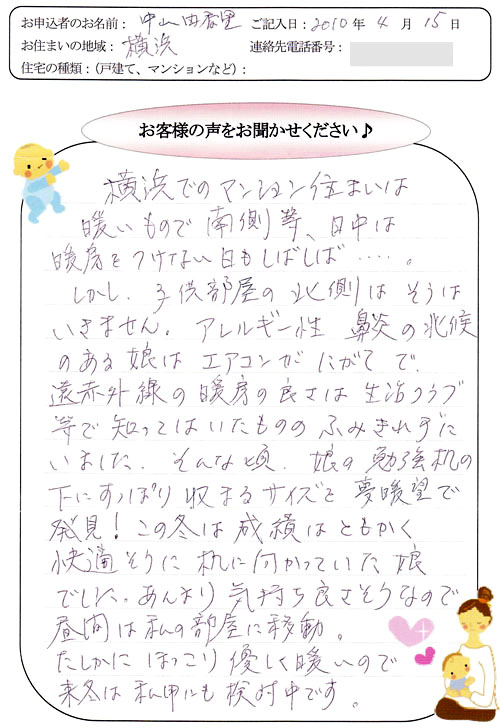 お申込者のお名前： 中山由香里 ご記入日：2010年 4月 15日
お住まいの地域： 横浜 連絡先電話番号：
住宅の種類：（戸建て、マンションなど）：
お客様の声をお聞かせください♪
横浜でのマンション住まいは
暖いもので南側等、日中は
暖房をつけない日もしばしば‥‥。
しかし、子供部屋の北側はそうは
いきません。アレルギー性 鼻炎の兆候
のある娘はエアコンがにがてで、
遠赤外線の暖房の良さは生活クラブ
等で知ってはいたもののふみきれずに
いました。そんな頃、娘の勉強机の
下にすっぽり収まるサイズを夢暖望で
発見！この冬は成績はともかく
快適そうに机に向かっていた娘
でした。あんまり気持ち良さそうなので
昼間は私の部屋に移動。
たしかにほっこり優しく暖いので
来冬は私用にも検討中です。